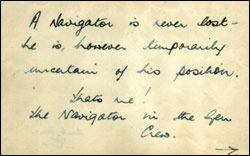 A Navigator is never lost –
he is, however temporarily
uncertain of his position.
Thats me!
The Navigator in the Gen
Crew.